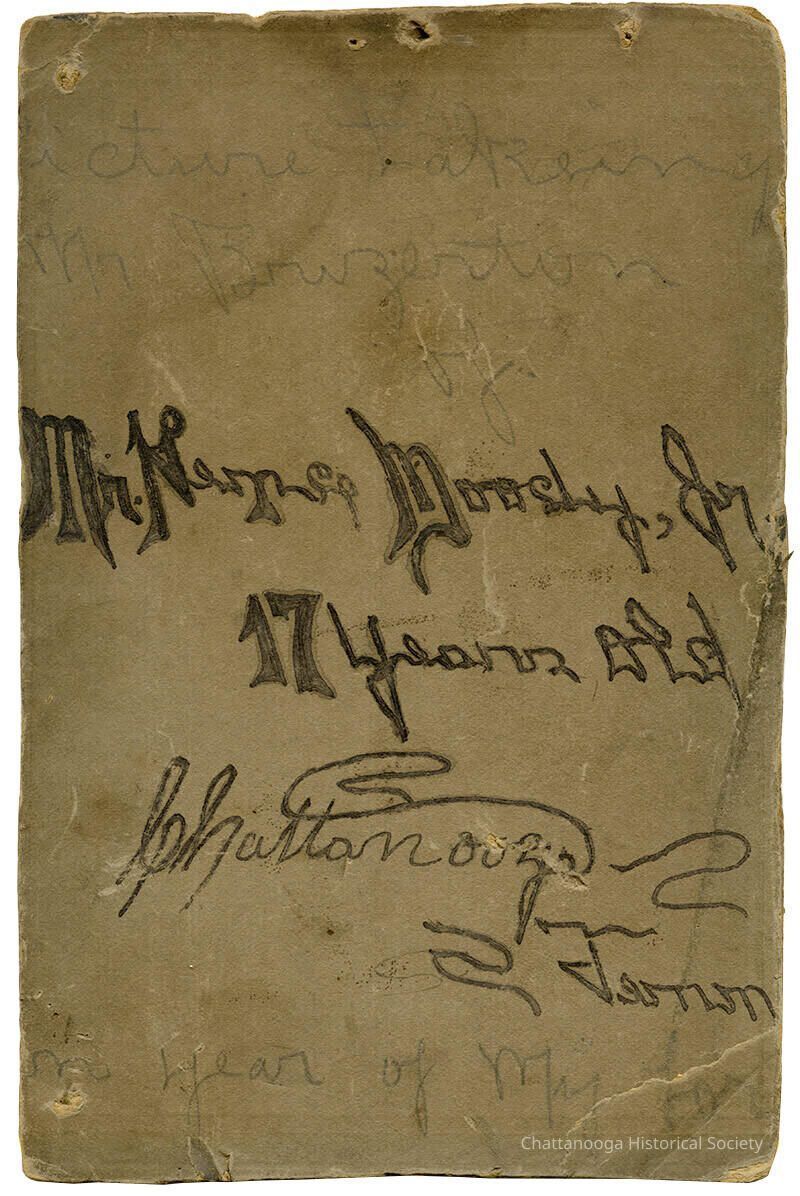 icture takeing
Mr Bowzerton
of
Mr. Moosly, Jr
17 Years Old
Chattanooga
In
Tennn
on year of My
Chattanooga Historical Society